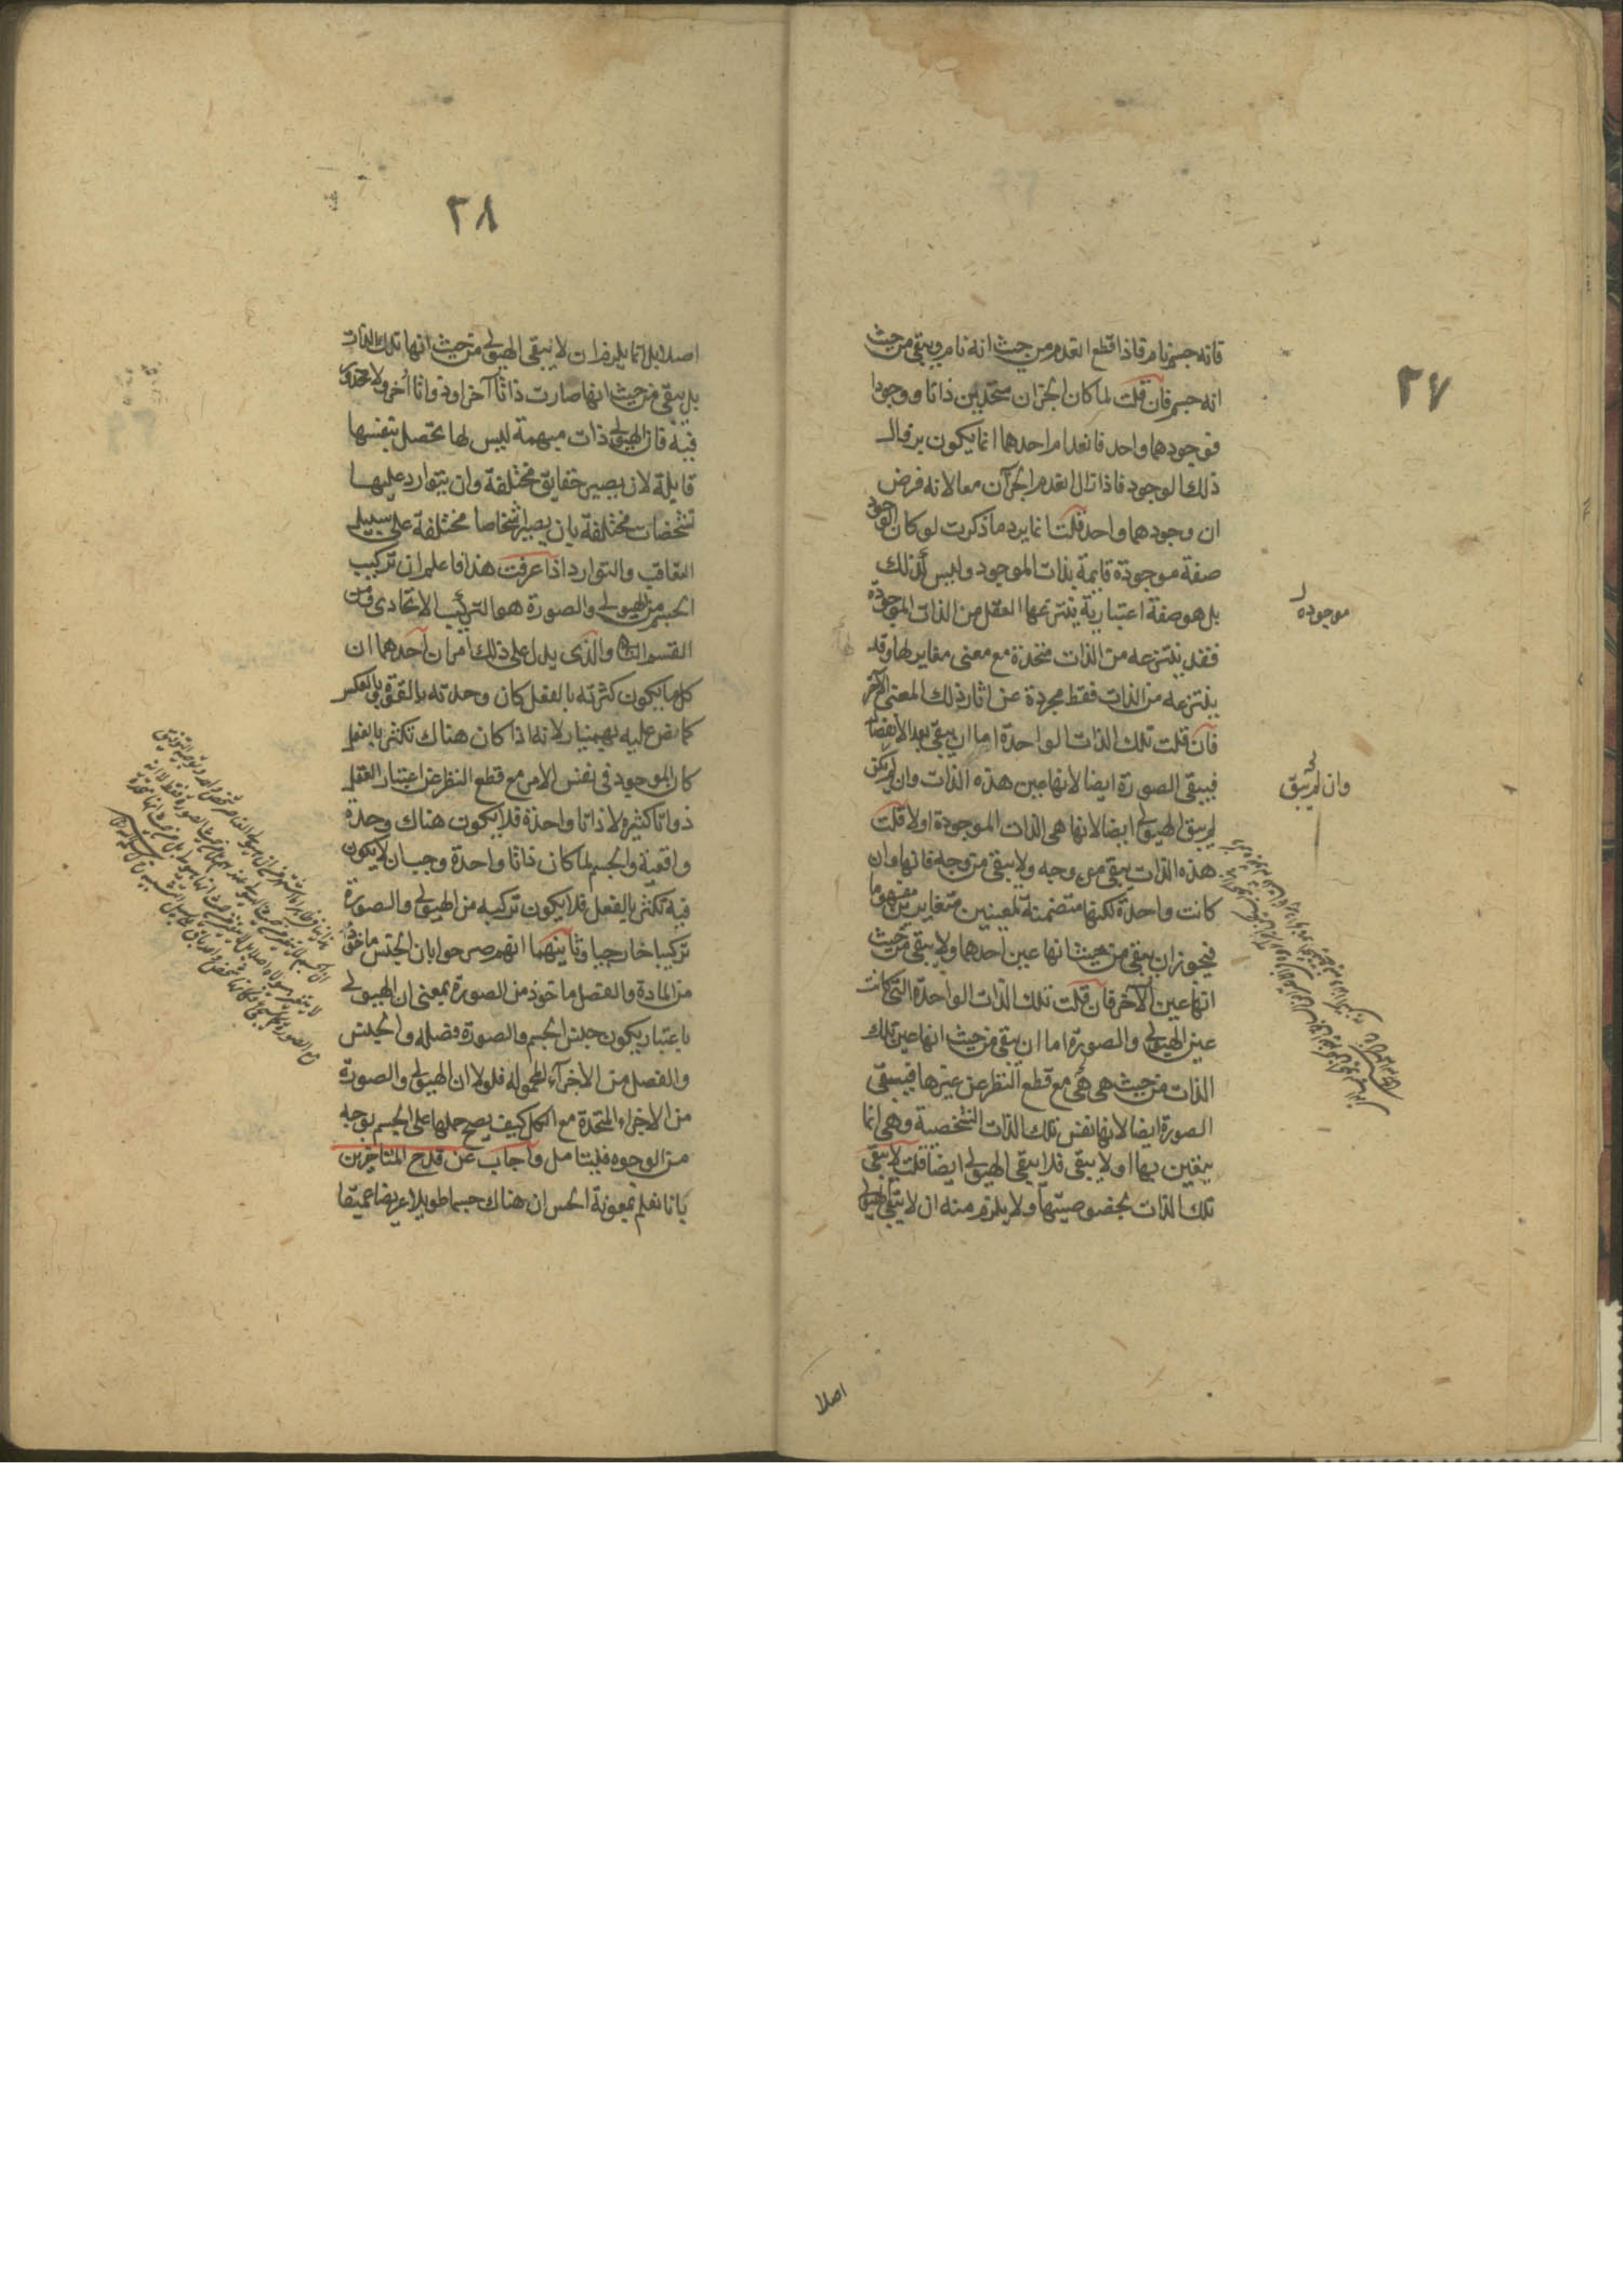 ٢٧
فانه جسم نام فاذا قطع انعدم من حيث انه نام ويبقى من حيث
انه جسم فان قلت لما كان الجزان متحدين ذاتا ووجودا
فوجودهما واحد فانعدام احدهما انما يكون بزوال
ذلك الوجود فاذا زال انعدم الجزآن معا لانه فرض
ان وجودهما واحد قلت انما يرد ما ذكرت لو كان الوجود
صفة موجودة قايمة بذات الموجود وليس كذلك
بل هو صفة اعتبارية ينتزعها العقل من الذات الموجودة
فقد ينتزعه من الذات متحدة مع معنى مغاير لها وقد
ينتزعه من الذات فقط مجردة عن اثار ذلك المعنى الآخر
فان قلت تلك الذات الواحدة اما ان يبقى بعد الانفصال
فيبقى الصورة ايضا لانها عين هذه الذات وان لم يكن
لم يبق الهيولى ايضا لانها هى الذات الموجودة اولا قلت
هذه الذات يبقى من وجه ولا يبقى من وجه فانها وان
كانت واحدة لكنها متضمنة لمعنيين متغايرين مفهوما
فيجوز ان يبقى من حيث انها عين احدهما ولا يبقى من حيث
انها عين الآخر فان قلت تلك الذات الواحدة التى كانت
عين الهيولى والصورة اما ان يبقى من حيث انها عين تلك
الذات من حيث هى هى مع قطع النظر عن غيرها فيبقى
الصورة ايضا لانها نفس تلك الذات الشخصية وهى انما
يتعين بها او لا يبقى فلا يبقى الهيولى ايضا قلت لا يبقى
تلك الذات بخصوصيتها ولا يلزم منه ان لا يبقى الهيولى
موجوده
وان لم يبق
اصلا
٢٨
اصلا بل انما يلزم ان لا يبقى الهيولى من حيث انها تلك الذات
بل يبقى من حيث انها صارت ذاتا آخر او ذواتا أخر ولا محذور
فيه فان الهيولى ذات مبهمة ليس لها تحصل بنفسها
قابلة لان يصير حقايق مختلفة وان يتوارد عليها
تشخصات مختلفة بان يصير اشخاصا مختلفة على سبيل
التعاقب والتوارد اذا عرفت هذا فاعلم ان تركيب
الجسم من الهيولى والصورة هو التركيب الاتحادى من
القسم الثانى والذى يدل على ذلك امران احدهما ان
كل ما يكون كثرته بالفعل كان وحدته بالقوة وبالعكس
كما نص عليه بهمنيار لانه اذا كان هناك تكثر بالفعل
كان الموجود فى نفس الامر مع قطع النظر عن اعتبار العقل
ذواتا كثيره لا ذاتا واحدة فلا يكون هناك وحدة
واقعية والجسم لما كان ذاتا واحدة وجب ان لا يكون
فيه تكثر بالفعل فلا يكون تركيبه من الهيولى والصورة
تركيبا خارجيا وثانيهما انهم صرحوا بان الجنس ماخوذ
من المادة والفصل ماخوذ من الصورة بمعنى ان الهيولى
باعتبار يكون جنس الجسم والصورة فصلله والجنس
والفصل من الاجزآء المحموله فلولا ان الهيولى والصورة
من الاجزاء المتحدة مع الكل كيف يصح حملها على الجسم بوجه
من الوجوه فليتامل واجاب عن قدح المتاخرين
بانا نعلم بمعونة الحس ان هناك جسما طويلا عريضا عميقا